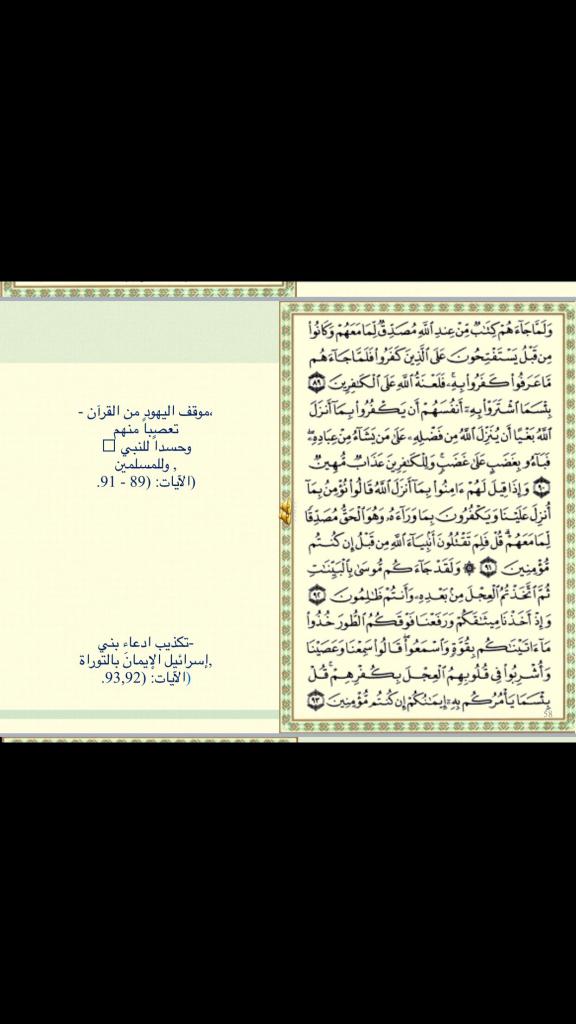 وَلَمَّا جَآءَهُمْ كِتَٰبٌ مِّنْ عِندِ ٱللَّهِ مُصَدِّقٌ لِّمَا مَعَهُمْ وَكَانُوا۟
مِن قَبْلُ يَسْتَفْتِحُونَ عَلَى ٱلَّذِينَ كَفَرُوا۟ فَلَمَّا جَآءَهُم
مَّا عَرَفُوا۟ كَفَرُوا۟ بِهِۦ فَلَعْنَةُ ٱللَّهِ عَلَى ٱلْكَٰفِرِينَ ٨٩
بِئْسَمَا ٱشْتَرَوْا۟ بِهِۦٓ أَنفُسَهُمْ أَن يَكْفُرُوا۟ بِمَآ أَنزَلَ
ٱللَّهُ بَغْيًا أَن يُنَزِّلَ ٱللَّهُ مِن فَضْلِهِۦ عَلَىٰ مَن يَشَآءُ مِنْ عِبَادِهِۦ
فَبَآءُو بِغَضَبٍ عَلَىٰ غَضَبٍ وَلِلْكَٰفِرِينَ عَذَابٌ مُّهِينٌ
٩٠ وَإِذَا قِيلَ لَهُمْ ءَامِنُوا۟ بِمَآ أَنزَلَ ٱللَّهُ قَالُوا۟ نُؤْمِنُ بِمَآ
أُنزِلَ عَلَيْنَا وَيَكْفُرُونَ بِمَا وَرَآءَهُۥ وَهُوَ ٱلْحَقُّ مُصَدِّقًا
لِّمَا مَعَهُمْ قُلْ فَلِمَ تَقْتُلُونَ أَنۢبِيَآءَ ٱللَّهِ مِن قَبْلُ إِن كُنتُم
مُّؤْمِنِينَ ٩١ ۞ وَلَقَدْ جَآءَكُم مُّوسَىٰ بِٱلْبَيِّنَٰتِ
ثُمَّ ٱتَّخَذْتُمُ ٱلْعِجْلَ مِنۢ بَعْدِهِۦ وَأَنتُمْ ظَٰلِمُونَ ٩٢
وَإِذْ أَخَذْنَا مِيثَٰقَكُمْ وَرَفَعْنَا فَوْقَكُمُ ٱلطُّورَ خُذُوا۟
مَآ ءَاتَيْنَٰكُم بِقُوَّةٍ وَٱسْمَعُوا۟ قَالُوا۟ سَمِعْنَا وَعَصَيْنَا
وَأُشْرِبُوا۟ فِى قُلُوبِهِمُ ٱلْعِجْلَ بِكُفْرِهِمْ قُلْ
بِئْسَمَا يَأْمُرُكُم بِهِۦٓ إِيمَٰنُكُمْ إِن كُنتُم مُّؤْمِنِينَ ٩٣
58
،موقف اليهود من القرآن -
تعصباً منهم
وحسداً للنبي □
, وللمسلمين
(الآيات: (89 - 91.
-تكذيب ادعاء بني
,إسرائيل الإيمانَ بالتوراة
(الآيات: (93,92.